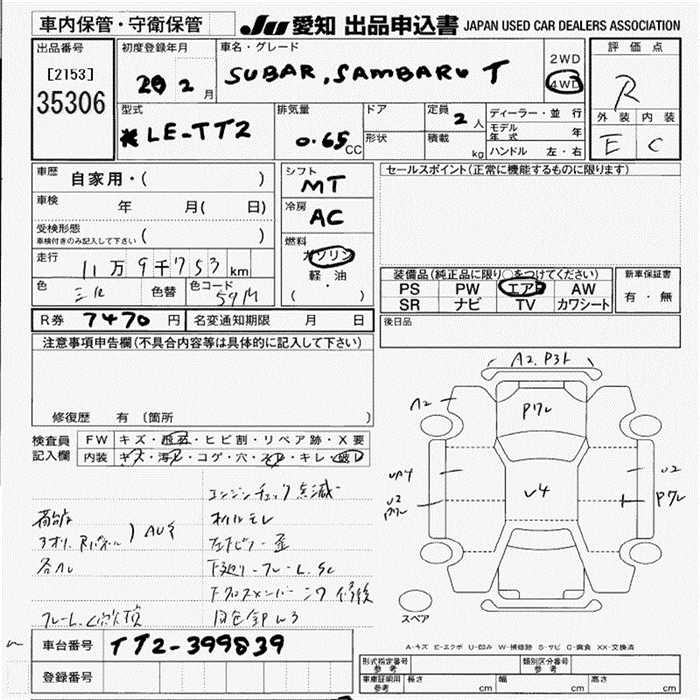 車内保管・守衛保管 JU 愛知 出品申込書 JAPAN USED CAR DEALERS ASSOCIATION
出品番号
[2153]
35306
初度登録年月
20 2 月
車名・グレード
SUBAR, SAMBARU T
2WD
4WD
評価点
R
外装 内装
E C
型式
*LE-TT2
排気量
0.65 CC
ドア
形状
定員 2 人
積載 kg
ディーラー・並行
モデル年式 年
ハンドル 左・右
車歴 自家用・( )
車検 年 月( 日)
受検形態
車検付きのみ記入して下さい ( )
走行 11万9千753 km
色 色替 色コード
シフト
MT
冷房
AC
燃料
ガソリン
軽油
( ・ )
セールスポイント(正常に機能するものに限ります)
装備品(純正品に限り○をつけてください)
PS PW エアB AW
SR ナビ TV カワシート
新車保証書
有・無
R券 7470 円 名変通知期限 月 日
後日品
注意事項申告欄(不具合内容等は具体的に記入して下さい)
修復歴 有 (箇所
検査員
記入欄
FW キズ・飛石・ヒビ割・リペア跡・X要
内装 キズ・汚レ・コゲ・穴・スレ・キレ・破レ
エンジンチェック点滅
オイルモレ
A2, P3ト
A2
Pワレ
V4
U2
Pワレ
U2
スペア
車台番号 TT2-399839
登録番号
A-キズ E-エクボ U-凹み W-補修跡 S-サビ C-腐食 XX-交換済
形式指定番号
参考
類別区分番号
参考
車庫証明用
参考
長さ cm 幅 cm 高さ cm